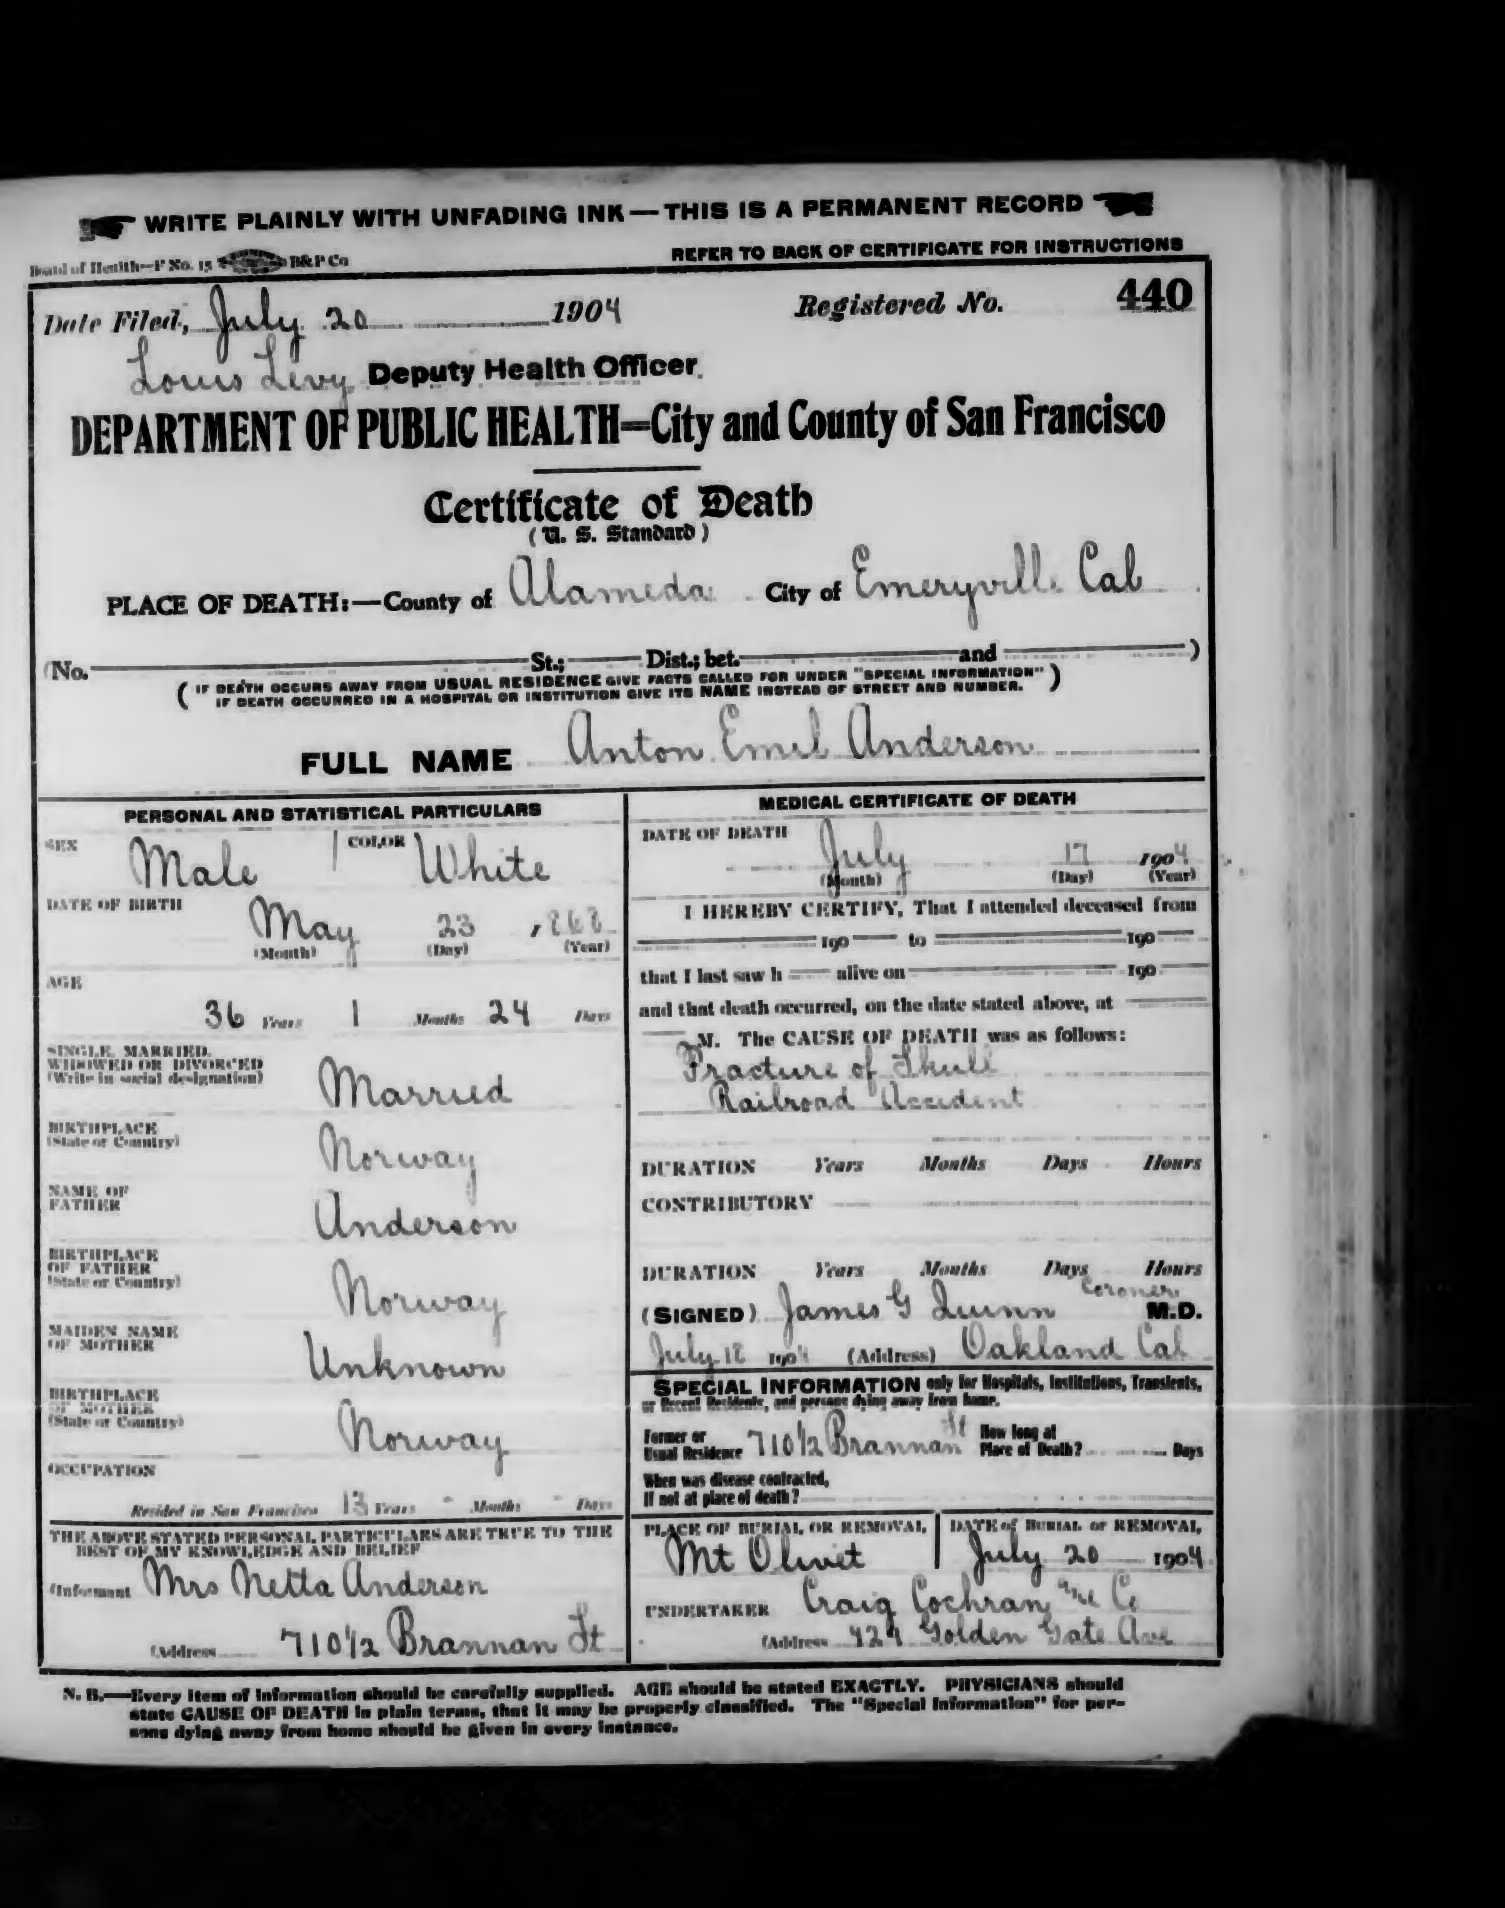 WRITE PLAINLY WITH UNFADING INK—THIS IS A PERMANENT RECORD
Board of Health—F No. 15 B&P Co
REFER TO BACK OF CERTIFICATE FOR INSTRUCTIONS
Date Filed, July 20 1904 Registered No. 440
Louis Levy Deputy Health Officer.
DEPARTMENT OF PUBLIC HEALTH=City and County of San Francisco
Certificate of Death
(U. S. Standard)
PLACE OF DEATH:—County of Alameda City of Emeryville Cal
(No. St.; Dist.; bet. and )
(IF DEATH OCCURS AWAY FROM USUAL RESIDENCE GIVE FACTS CALLED FOR UNDER "SPECIAL INFORMATION"
IF DEATH OCCURRED IN A HOSPITAL OR INSTITUTION GIVE ITS NAME INSTEAD OF STREET AND NUMBER.)
FULL NAME Anton Emil Anderson
PERSONAL AND STATISTICAL PARTICULARS
SEX Male COLOR White
DATE OF BIRTH May 23 1868
(Month) (Day) (Year)
AGE
36 Years 1 Months 24 Days
SINGLE, MARRIED,
WIDOWED OR DIVORCED
(Write in social designation) Married
BIRTHPLACE
(State or Country) Norway
NAME OF
FATHER Anderson
BIRTHPLACE
OF FATHER
(State or Country) Norway
MAIDEN NAME
OF MOTHER Unknown
BIRTHPLACE
OF MOTHER
(State or Country) Norway
OCCUPATION
Resided in San Francisco 13 Years - Months - Days
THE ABOVE STATED PERSONAL PARTICULARS ARE TRUE TO THE
BEST OF MY KNOWLEDGE AND BELIEF
(Informant Mrs Netta Anderson
(Address 710 1/2 Brannan St
MEDICAL CERTIFICATE OF DEATH
DATE OF DEATH July 17 1904
(Month) (Day) (Year)
I HEREBY CERTIFY, That I attended deceased from
190 to 190
that I last saw h alive on 190
and that death occurred, on the date stated above, at
M. The CAUSE OF DEATH was as follows:
Fracture of Skull
Railroad Accident
DURATION Years Months Days Hours
CONTRIBUTORY
DURATION Years Months Days Hours
(SIGNED) James G Quinn Coroner M.D.
July 18 1904 (Address) Oakland Cal
SPECIAL INFORMATION only for Hospitals, Institutions, Transients,
or Recent Residents, and persons dying away from home.
Former or
Usual Residence 710 1/2 Brannan St How long at
Place of Death? Days
When was disease contracted,
If not at place of death?
PLACE OF BURIAL OR REMOVAL Mt Olivet
DATE of BURIAL or REMOVAL July 20 1904
UNDERTAKER Craig Cochran and Co
(Address 429 Golden Gate Ave
N. B.—Every item of information should be carefully supplied. AGE should be stated EXACTLY. PHYSICIANS should
state CAUSE OF DEATH in plain terms, that it may be properly classified. The "Special Information" for per-
sons dying away from home should be given in every instance.